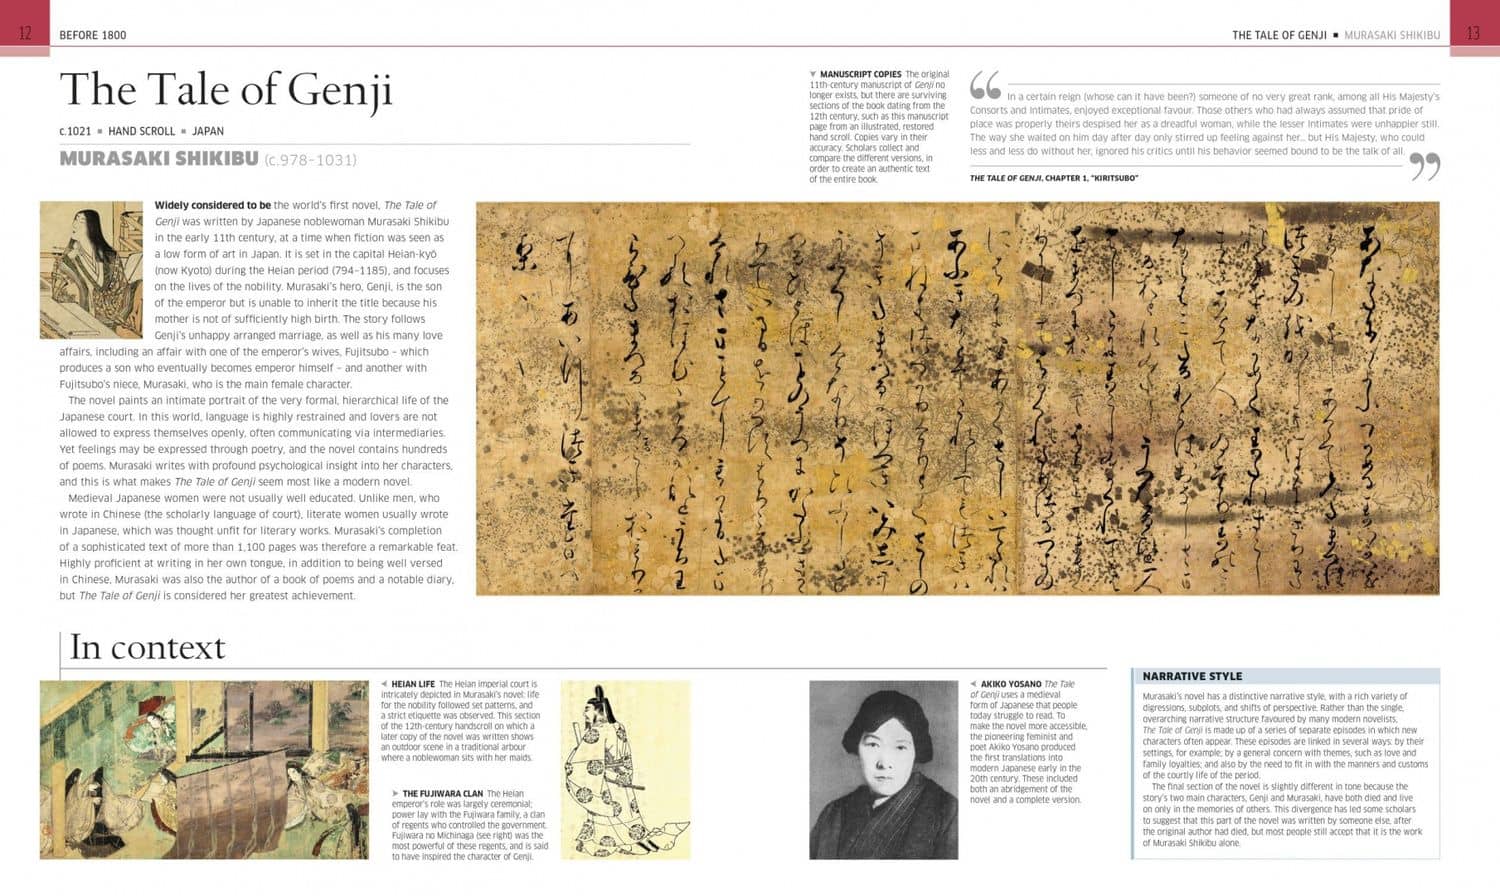 12
BEFORE 1800
THE TALE OF GENJI ■ MURASAKI SHIKIBU
13
The Tale of Genji
c.1021 ■ HAND SCROLL ■ JAPAN
MURASAKI SHIKIBU (c.978–1031)
Widely considered to be the world's first novel, The Tale of
Genji was written by Japanese noblewoman Murasaki Shikibu
in the early 11th century, at a time when fiction was seen as
a low form of art in Japan. It is set in the capital Heian-kyō
(now Kyoto) during the Heian period (794–1185), and focuses
on the lives of the nobility. Murasaki's hero, Genji, is the son
of the emperor but is unable to inherit the title because his
mother is not of sufficiently high birth. The story follows
Genji's unhappy arranged marriage, as well as his many love
affairs, including an affair with one of the emperor's wives, Fujitsubo – which
produces a son who eventually becomes emperor himself – and another with
Fujitsubo's niece, Murasaki, who is the main female character.
The novel paints an intimate portrait of the very formal, hierarchical life of the
Japanese court. In this world, language is highly restrained and lovers are not
allowed to express themselves openly, often communicating via intermediaries.
Yet feelings may be expressed through poetry, and the novel contains hundreds
of poems. Murasaki writes with profound psychological insight into her characters,
and this is what makes The Tale of Genji seem most like a modern novel.
Medieval Japanese women were not usually well educated. Unlike men, who
wrote in Chinese (the scholarly language of court), literate women usually wrote
in Japanese, which was thought unfit for literary works. Murasaki's completion
of a sophisticated text of more than 1,100 pages was therefore a remarkable feat.
Highly proficient at writing in her own tongue, in addition to being well versed
in Chinese, Murasaki was also the author of a book of poems and a notable diary,
but The Tale of Genji is considered her greatest achievement.
▼ MANUSCRIPT COPIES The original
11th-century manuscript of Genji no
longer exists, but there are surviving
sections of the book dating from the
12th century, such as this manuscript
page from an illustrated, restored
hand scroll. Copies vary in their
accuracy. Scholars collect and
compare the different versions, in
order to create an authentic text
of the entire book.
“ In a certain reign (whose can it have been?) someone of no very great rank, among all His Majesty's
Consorts and Intimates, enjoyed exceptional favour. Those others who had always assumed that pride of
place was properly theirs despised her as a dreadful woman, while the lesser Intimates were unhappier still.
The way she waited on him day after day only stirred up feeling against her... but His Majesty, who could
less and less do without her, ignored his critics until his behavior seemed bound to be the talk of all. ”
THE TALE OF GENJI, CHAPTER 1, "KIRITSUBO"
In context
◄ HEIAN LIFE The Heian imperial court is
intricately depicted in Murasaki's novel: life
for the nobility followed set patterns, and
a strict etiquette was observed. This section
of the 12th-century handscroll on which a
later copy of the novel was written shows
an outdoor scene in a traditional arbour
where a noblewoman sits with her maids.
► THE FUJIWARA CLAN The Heian
emperor's role was largely ceremonial;
power lay with the Fujiwara family, a clan
of regents who controlled the government.
Fujiwara no Michinaga (see right) was the
most powerful of these regents, and is said
to have inspired the character of Genji.
◄ AKIKO YOSANO The Tale
of Genji uses a medieval
form of Japanese that people
today struggle to read. To
make the novel more accessible,
the pioneering feminist and
poet Akiko Yosano produced
the first translations into
modern Japanese early in the
20th century. These included
both an abridgement of the
novel and a complete version.
NARRATIVE STYLE
Murasaki's novel has a distinctive narrative style, with a rich variety of
digressions, subplots, and shifts of perspective. Rather than the single,
overarching narrative structure favoured by many modern novelists,
The Tale of Genji is made up of a series of separate episodes in which new
characters often appear. These episodes are linked in several ways: by their
settings, for example; by a general concern with themes, such as love and
family loyalties; and also by the need to fit in with the manners and customs
of the courtly life of the period.
The final section of the novel is slightly different in tone because the
story's two main characters, Genji and Murasaki, have both died and live
on only in the memories of others. This divergence has led some scholars
to suggest that this part of the novel was written by someone else, after
the original author had died, but most people still accept that it is the work
of Murasaki Shikibu alone.